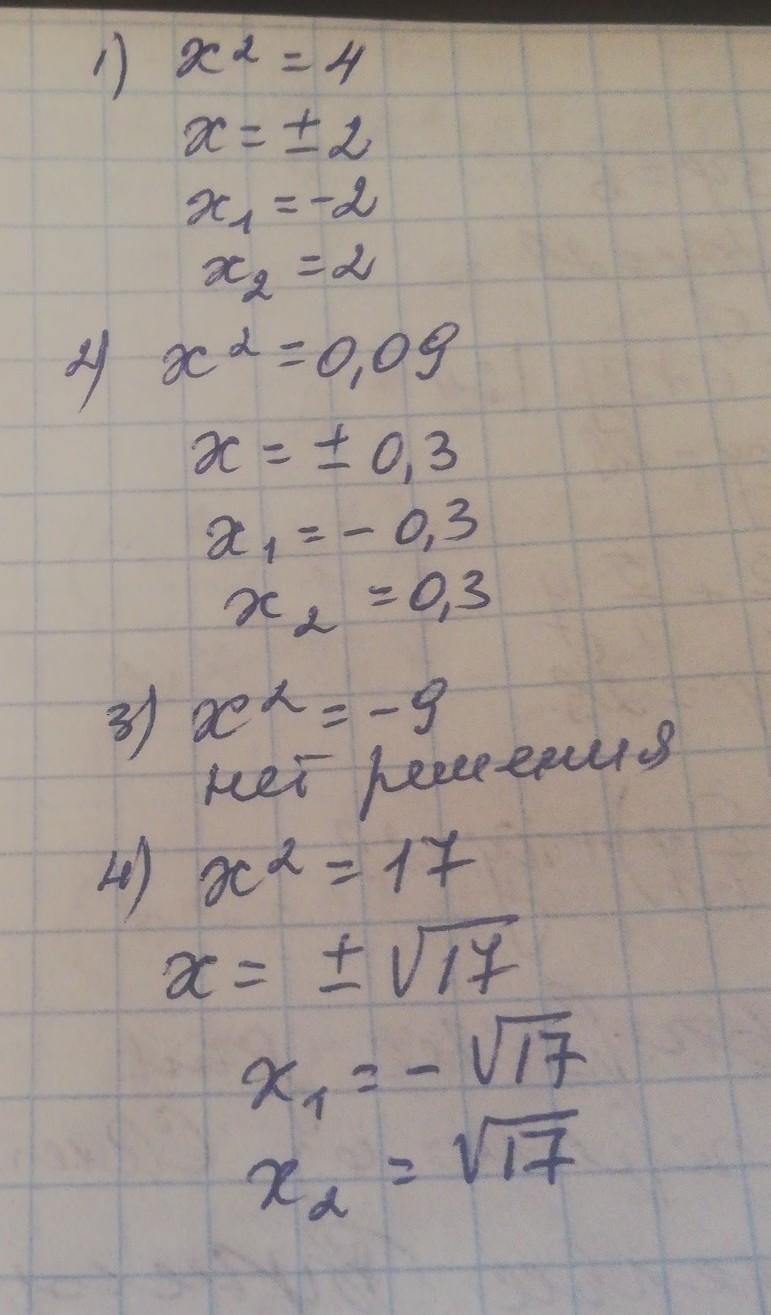 1) x² = 4
x = ± 2
x₁ = -2
x₂ = 2
2) x² = 0,09
x = ± 0,3
x₁ = - 0,3
x₂ = 0,3
3) x² = -9
нет решения
4) x² = 17
x = ± √17
x₁ = - √17
x₂ = √17